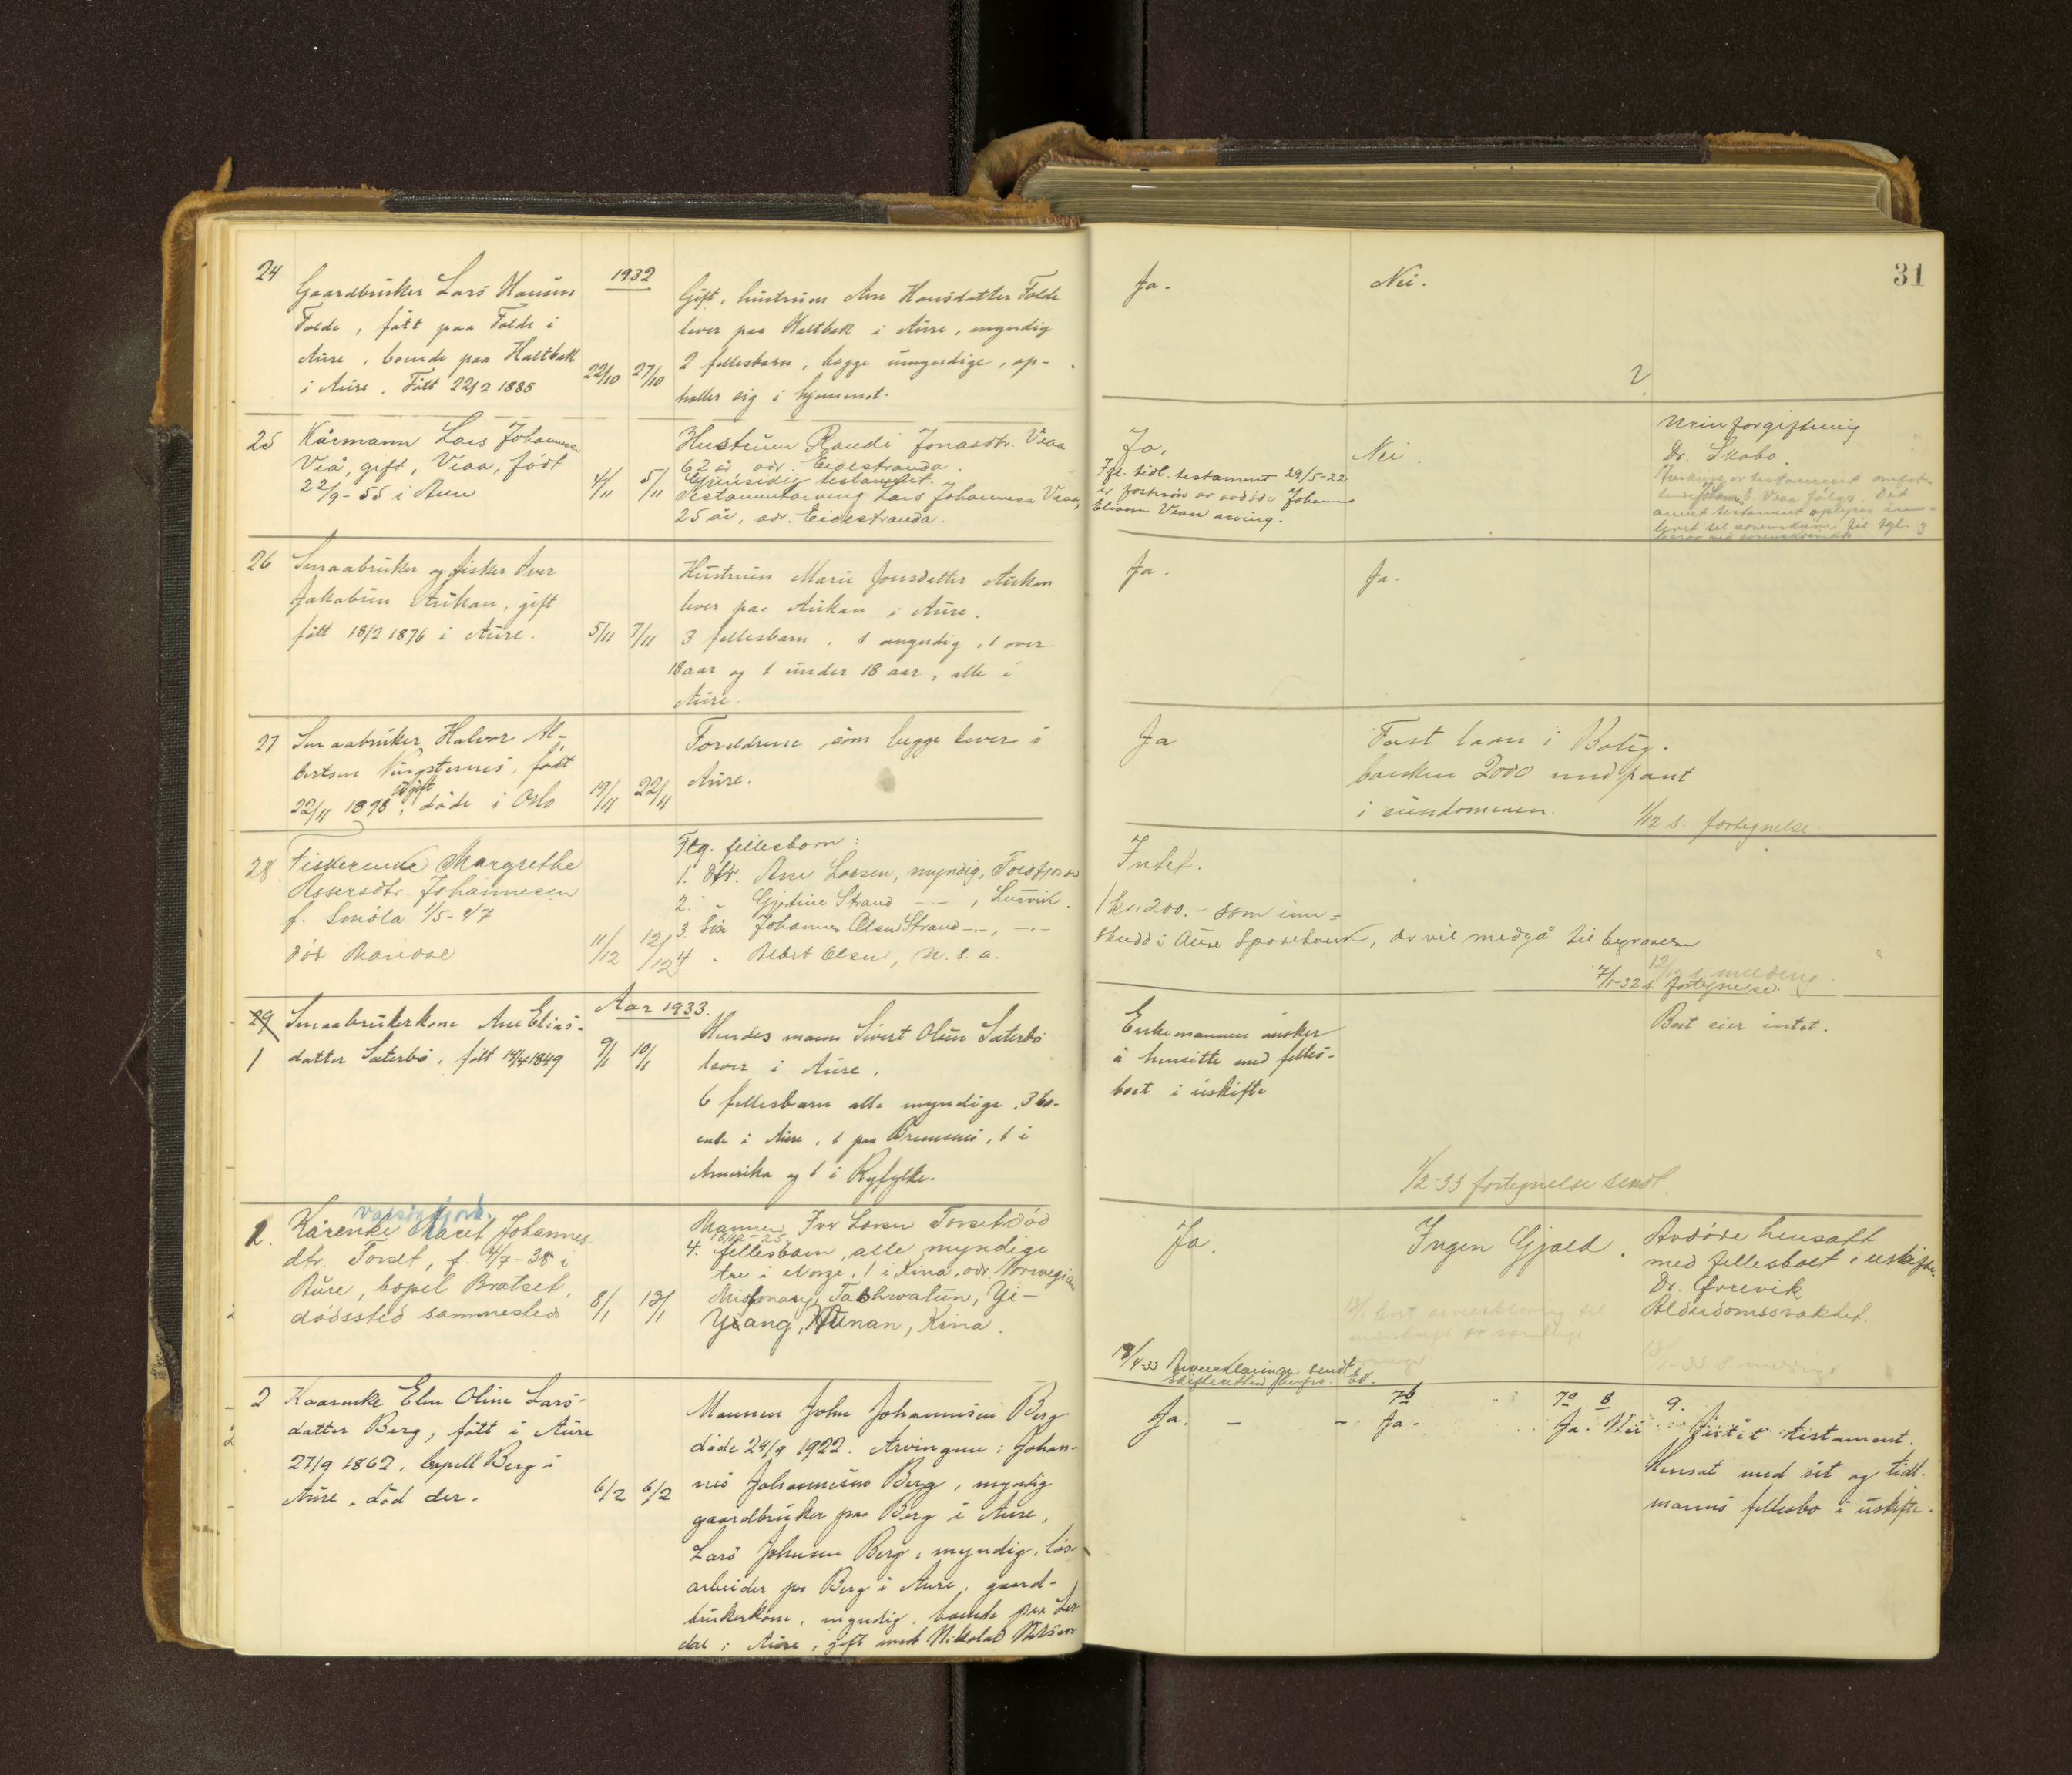 31
24
1932
Gaardbruker Lars Hansen
Folde, født paa Folde i
Aure, boende paa Haltbak
i Aure. Født 22/2 1885
22/10 27/10
Gift, hustruen Ane Hansdatter Folde
lever paa Haltbak i Aure, myndig
2 fellesbarn, begge umyndige, op-
holder sig i hjemmet.
Ja.
Nei.
25
Kårmann Lars Johannesen
Veå, gift, Veaa, født
22/9-55 i Aure
4/11 5/11
Hustruen Randi Jonasdtr. Veaa
62 år, adr. Eidestranda.
Gjensidig testament. og
Testamentarving Lars Johannesen Veaa,
25 år, adr. Eidestranda.
Ja,
Nei.
Ifl. tidl. testament 29/5-22
er fostersøn av avdøde Johannes
Eliassen Veaa arving.
Urinforgiftning
Dr. Skobo.
26
Smaabruker og fisker Iver
Jakobsen Aukan, gift
født 18/2 1876 i Aure.
5/11 7/11
Hustruen Marie Jonsdatter Aukan
lever paa Aukan i Aure.
3 fellesbarn, 1 myndig, 1 over
18 aar og 1 under 18 aar, alle i
Aure.
Ja.
Ja.
27
Smaabruker Halvor Al-
bertsen Vingsternes, født
ugift
22/11 1898, døde i Oslo
19/11 22/11
Foreldrene, som begge lever i
Aure.
Ja
Fast laan i Bolig-
banken 2000 med pant
i eiendommen.
1/12 s. fortegnelse.
28.
Fiskerenke Margrethe
Assersdtr. Johannesen
f. Smöla 1/5-47
död
11/12 12/12
Ftg. fellesborn:
1. dtr. Ane Larsen, myndig, Foldfjorden
2. " Gjertine Strand -"-, Lurvik.
3. Søn Johannes Olsen Strand -"-, -"-
4 " Albert Olsen, U. S. A.
Intet.
1 kr. 200.- som inn-
skudd i Aure Sparebank, der vil medgå til begravelsen
12/12 s. melding
7/1-32 s. fortegnelse.
Aar 1933.
29
1
Smaabrukerkone Ane Elias-
datter Sæterbø, født 14/4 1849
9/1 10/1
Hendes mann Sivert Olsen Sæterbø
lever i Aure.
6 fellesbarn alle myndige, 3 bo-
ende i Aure, 1 paa Bremsnes, 1 i
Amerika og 1 i Ryfylke.
Enkemannen ønsker
å hensitte med felles-
boet i uskifte
Boet eier intet.
1/2-33 fortegnelse sendt.
2.
Valsøyfjord.
Kårenke Maret Johannes-
dtr. Torset, f. 4/7-38 i
Aure, bopel Bratset,
dødssted sammesteds
8/1 13/1
Mannen Iver Larsen Torset død
18/12-25.
4. fellesbarn, alle myndige
tre i Norge, 1 i Kina, adr. Norwegian
Missionary, Tashwatun, Yi-
Yiang, Hunan, Kina.
Ja.
Ingen Gjæld.
Avdøde hensatt
med fellesboet i uskifte.
Dr.
Alderdomssvakhet.
18/4-33 Arveerklæringer sendt
2
Kaarenke Elen Oline Lars-
datter Berg, født i Aure
27/9 1862, bopell Berg i
Aure, død der.
6/2 6/2
Mannen John Johannesen Berg
døde 24/9 1922. Arvingene: Johan-
nes Johannesen Berg, myndig
gaardbruker paa Berg i Aure,
Lars Johnsen Berg, myndig, løs-
arbeider paa Berg i Aure, gaard-
brukerkone, myndig, boende paa Ler-
dal i Aure, gift med Nikolai Nilsen
Ja. - -
7b
Ja.
7a 8 9.
Ja. Nei Intet testament.
Hensat med sit og tidl.
manns fellesbo i uskifte.